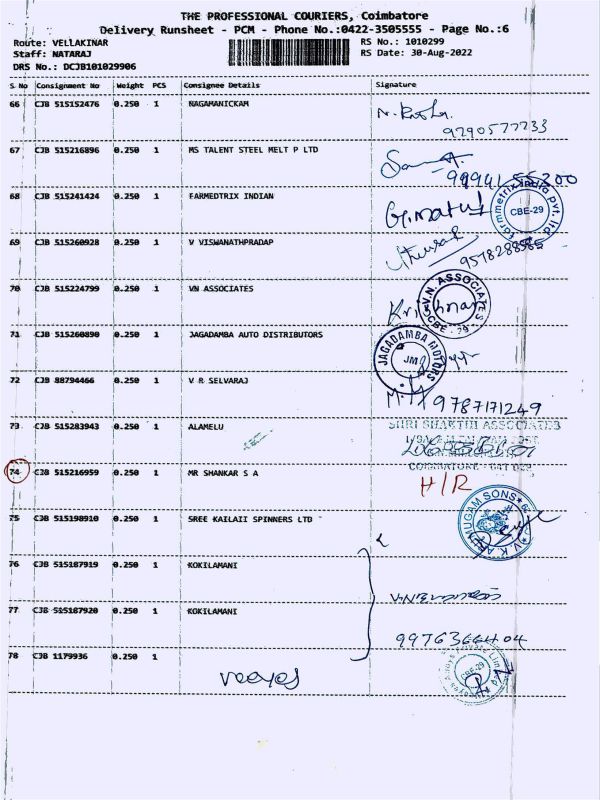 THE PROFESSIONAL COURIERS, Coimbatore
Delivery Runsheet - PCM - Phone No.:0422-3505555 - Page No.:6
Route: VELLAKINAR RS No.: 1010299
Staff: NATARAJ RS Date: 30-Aug-2022
DRS No.: DCJB101029906
S No Consignment No Weight PCS Consignee Details Signature
66 CJB 515152476 0.250 1 NAGAMANICKAM
9790577233
67 CJB 515216896 0.250 1 MS TALENT STEEL MELT P LTD
68 CJB 515241424 0.250 1 FARMEDTRIX INDIAN
farmmetrix India pvt. ltd
CBE-29
69 CJB 515260928 0.250 1 V VISWANATHPRADAP
70 CJB 515224799 0.250 1 VN ASSOCIATES
V.N. ASSOCIATES
CBE - 29
71 CJB 515260890 0.250 1 JAGADAMBA AUTO DISTRIBUTORS
JAGADAMBA MOTORS
JM
72 CJB 88794466 0.250 1 V R SELVARAJ
9787171249
73 CJB 515283943 0.250 1 ALAMELU
SHRI SHAKTHI ASSOCIATES
COIMBATORE - 641 029
74 CJB 515216959 0.250 1 MR SHANKAR S A
H/R
75 CJB 515198910 0.250 1 SREE KAILAII SPINNERS LTD
76 CJB 515187919 0.250 1 KOKILAMANI
77 CJB 515187920 0.250 1 KOKILAMANI
9976366404
78 CJB 1179936 0.250 1
CBE-29